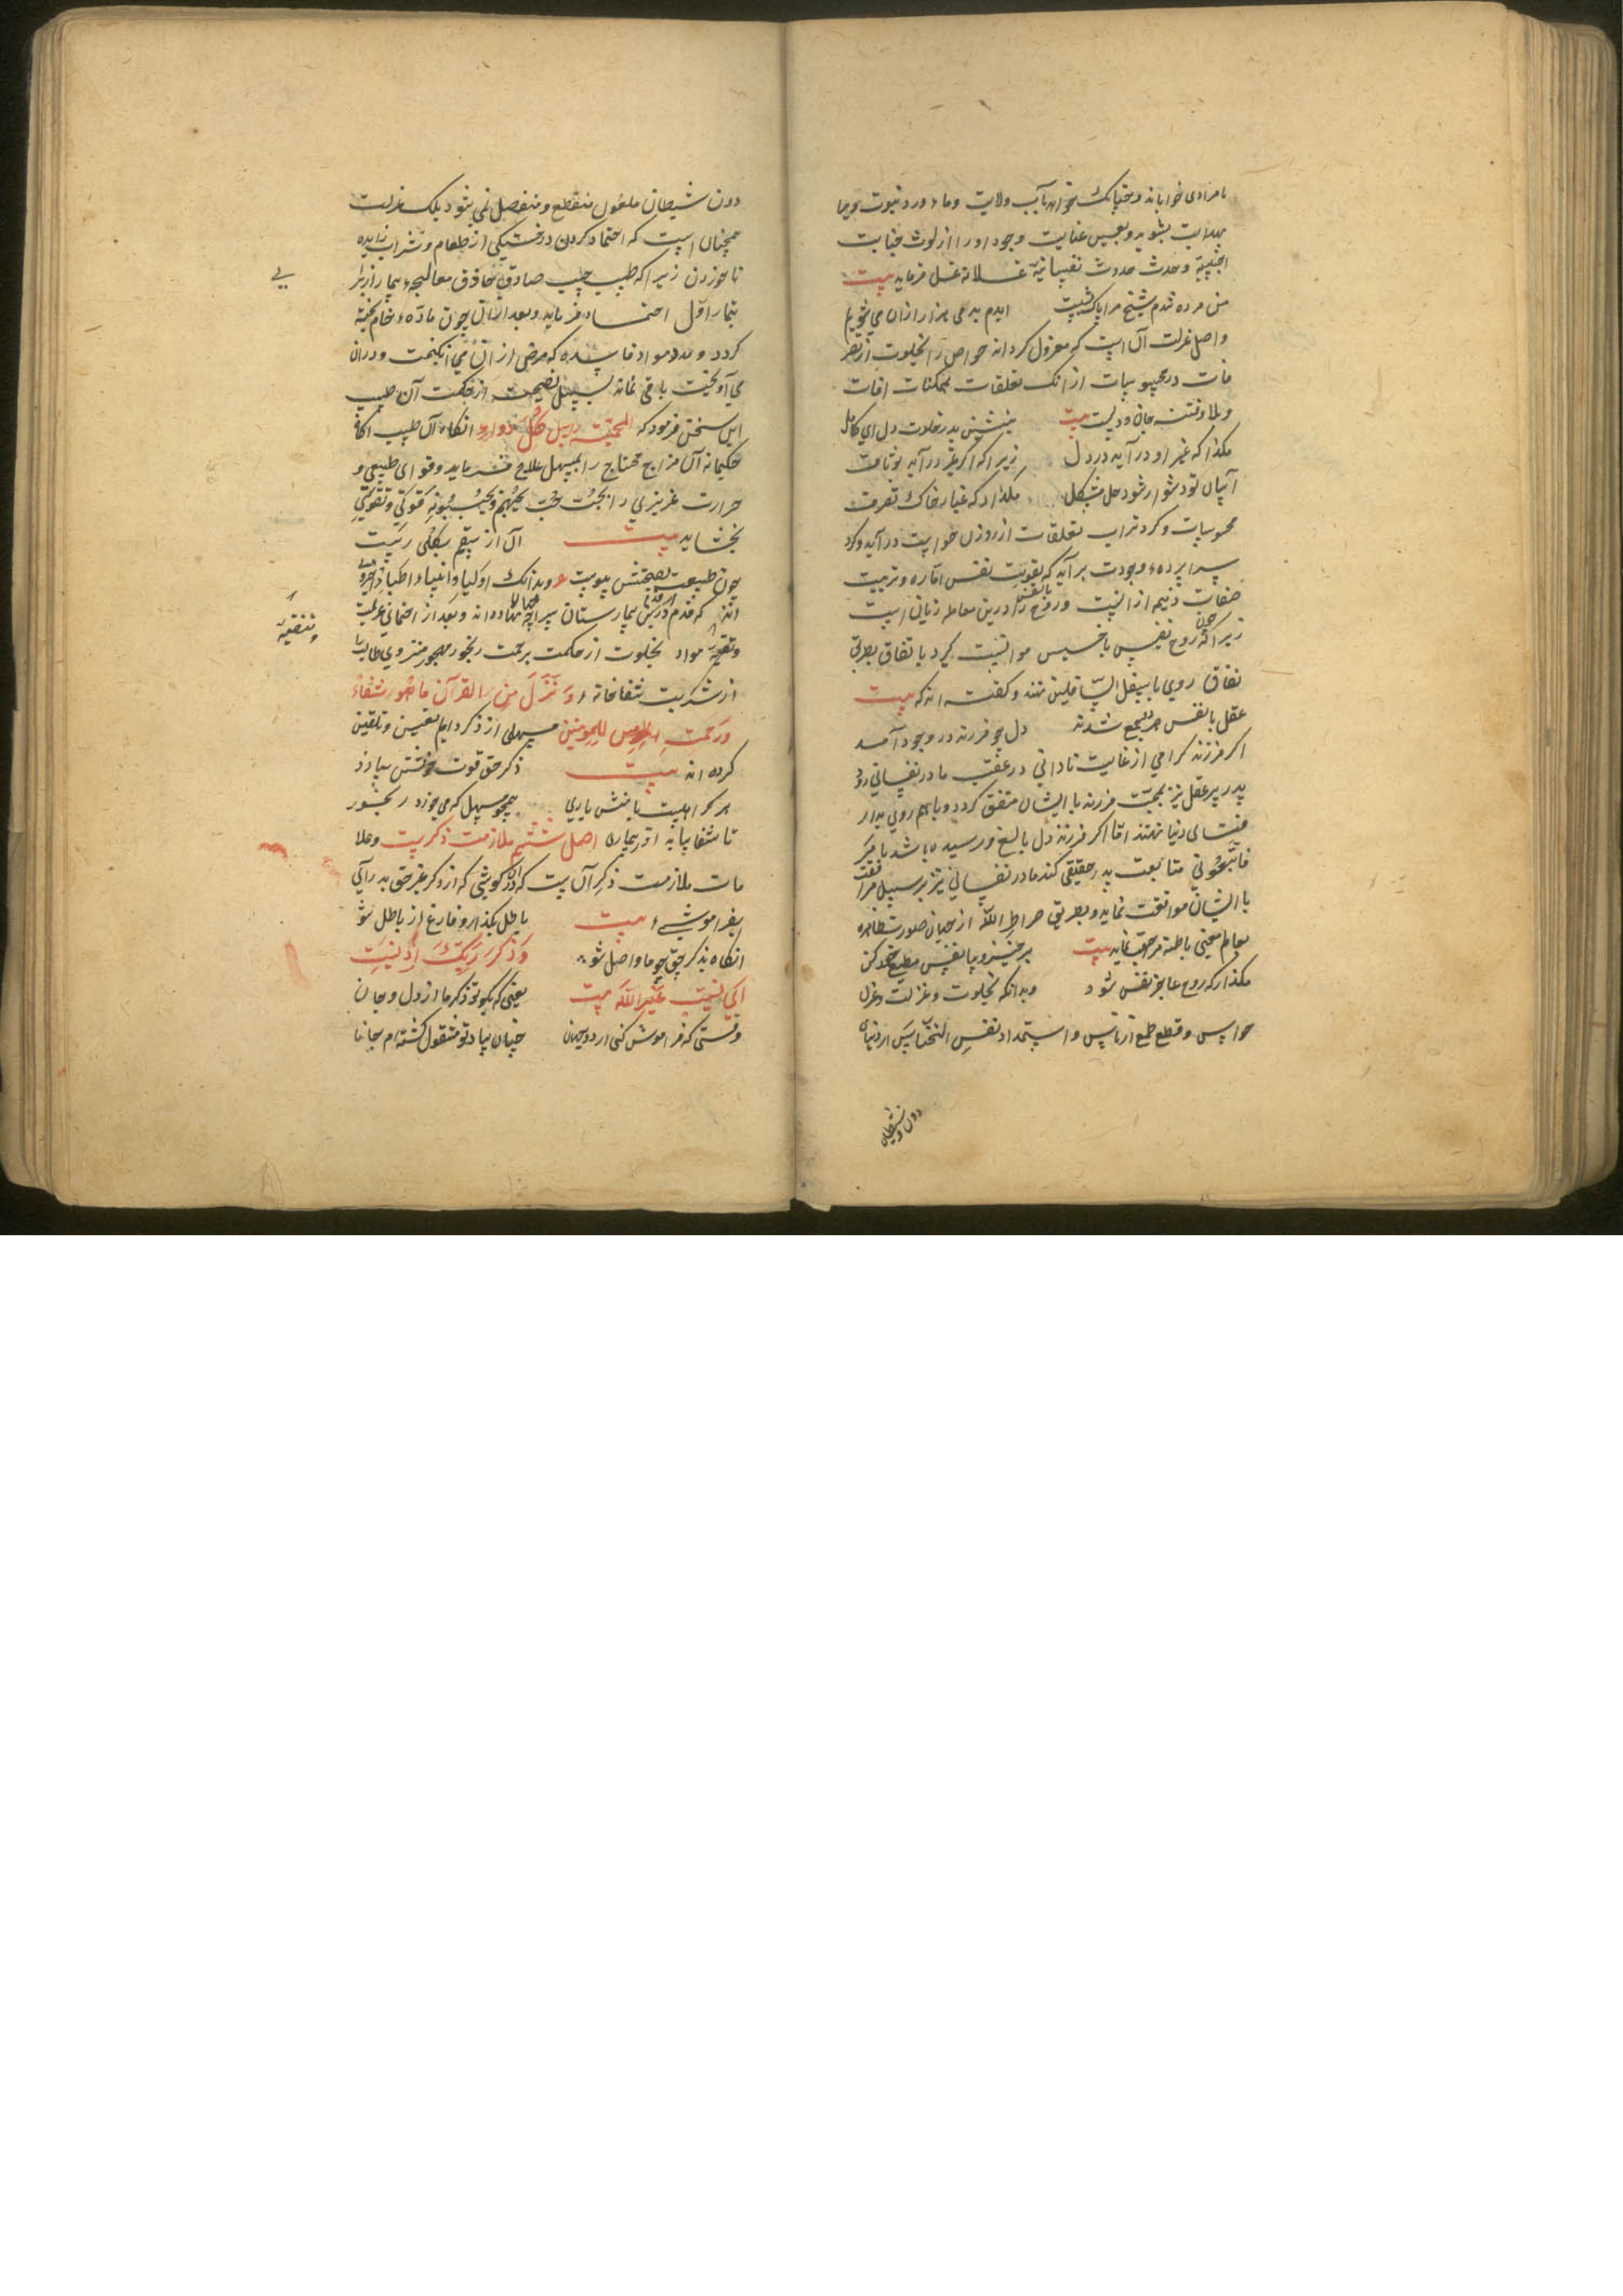 نامرادی خواباند و چنانک خواهد بآب ولایت وماء ورد نبوت ویرا
بهدایت بشوید و بعین عنایت وجود او را از لوث جنابت
اجنبیة وحدث حدوث نفسانیة غسلانه غسل فرماید بیت
من مرده شدم شیخ مرا پاک بشست
واصل عزلت آن است که معزول کرداند حواس را بخلوت از تصر
فات در محسوسات از انک تعلقات ممکنات افات
و بلا وفتنه جان ودلست بیت بنشین بدر خلوت دل ای کامل
مکذار که غیر او در آید در دل زیرا که اکر غیر در آید بوثاقت
آسان تو دشوار شود حل مشکل مکذار که غبار خاک تصرفات
محسوسات و کرد تراب تعلقات از روزن حواست درآید و کرد
سراپرده وجودت برآید که تقویت نفس اماره و تربیت
صفات ذمیمه از انست و روح را با نفس درین معامله زیانی است
زیرا که چون روح نفیس با خسیس موانست کیرد باتفاق بطریق
نفاق روی با سفل السافلین نهند و کفته اند که بیت
عقل با نفس چو جمع شدند دل چو فرزند در وجود آمد
اکر فرزند کرامی از غایت نادانی در عقب مادر نفسانی رود
پدر پیر عقل نیز بمحبت فرزند با ایشان متفق کردد و باهم روی بدار
فنای دنیا نهند اما اکر فرزند دل بالغ و رسیده باشد بامر
فاتبعونی متابعت پدر حقیقی کند مادر نفسانی نیز بر سبیل مرافقت
با ایشان موافقت نماید و بطریق صراط الله از جهان صورت ظاهره
بعالم معنی باطنه مراجعت نماید بیت برخیز و بیا نفس مطیع خود کن
مکذار که روح عاجز نفس شود و بدانکه بخلوت و عزلت و عزل
حواس و قطع طمع از ناس و استمداد نفس الخناس از دنیای
دون و شیطان
دون شیطان ملعون منقطع و منفصل نمی شود بلک عزلت
همچنان است که احتماد کردن در خستکی از طعام و شراب زایده
ناخوردن زیرا که طبیب حبیب صادق حاذق معالجه بیمار را از بهر
تیمار اول احتماد فرماید و بعد از ان چون ماده خام پخته
کردد و مدد مواد فاسده که مرض از ان می انکیخت و در ان
می آویخت باقی نماند بسبیل نصیحت از حکمت آن طبیب
این سخن فرمود که الحمیة رأس کل دواء انکاه آن طبیب
حکیمانه آن مزاج محتاج را بمسهل علاج فرماید و قوای طبیعی و
حرارت غریزی را بحب حب یحبهم ویحبونه قوتی و تقویتی
بخشاید بیت آن از سقم بکلی رست
چون طبیعت بصحتش پیوست و بدانک اولیا و انبیاء اطباء اخروی
اند که قدم در بیمارستان سراچه جهان نهاده اند و بعد از احتمای عزلت
و تنقیه مواد بخلوت از حکمت برحمت رنجور مهجور منزوی طالب را
از شربت شفاخانه و ننزل من القرآن ما هو شفاء
ورحمة للمؤمنین مسهلی از ذکر دایم تعیین و تلقین
کرده اند بیت ذکر حق قوت خویشتن سازد
هر کرا اهلیت یابنش یاری همچو مسهل که می خورد رنجور
تا شفا یابد از بیماری اصل ششم ملازمت ذکرست و علا
مات ملازمت ذکر آن است که در آن کوشی که از ذکر غیر حق بدر آیی
بفراموشیء بیت باطل بکذار و فارغ از باطل شو
انکاه بذکر حق چو ما واصل شو واذکر ربک اذا نسیت
ای نسیت غیر الله بیت یعنی که بکو تو ذکر ما از دل و جان
وقتی که فراموش کنی از دو جهان چنان بیاد تو مشغول کشته ام بجانا
تنقیه